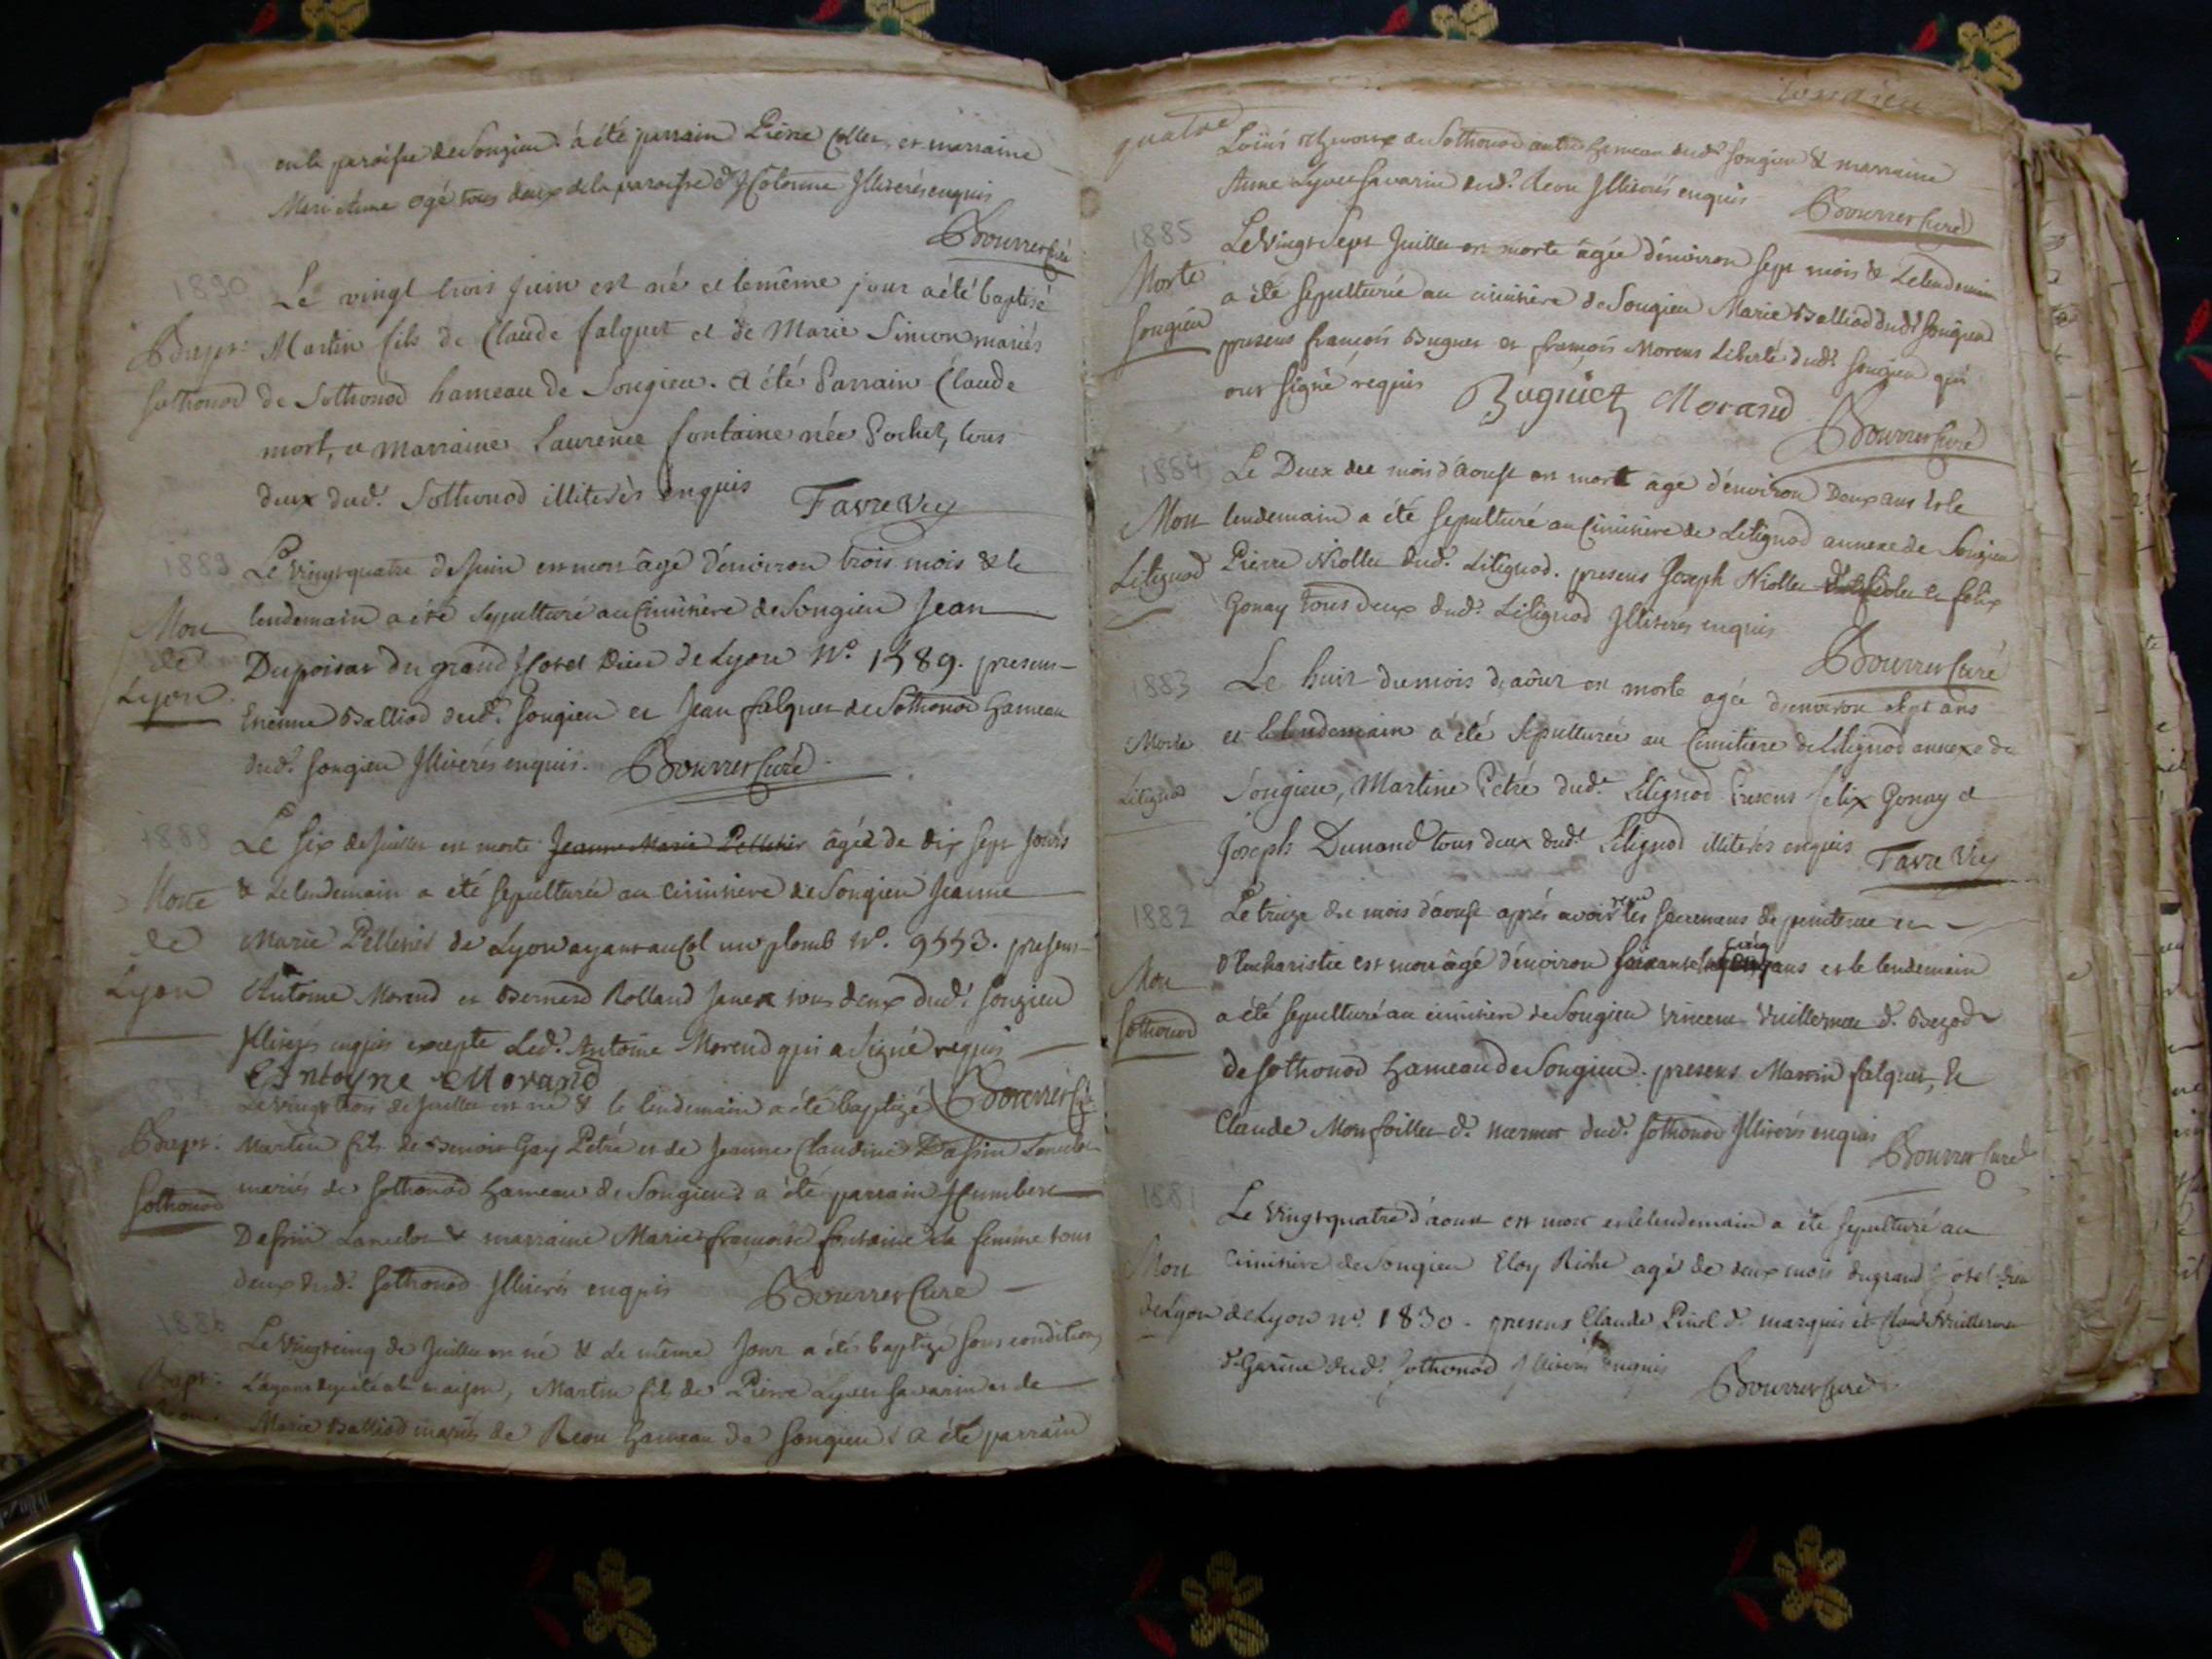 en la paroisse de Songieu. a été parrain Pierre Collet, et marraine
Marianne ogé tous deux de la paroisse d'Hotonne Illiterés enquis
Bourrer Curé
1890
Le vingt trois juin est né et le même jour a été baptisé
Bapt: Martin fils de Claude falquet et de Marie Simon mariés
Sothonod de Sothonod hameau de Songieu. A été Parrain Claude
mort, et Marraine Laurence fontaine née Pochet, tous
deux dud. Sothonod illiterés enquis Favre Vic
1889
Le Vingt quatre de Juin est mort âgé d'environ trois mois & le
Mort lendemain a été sepulturé au Cimitière de Songieu Jean
de Dupoisat du grand Hotel Dieu de Lyon N.º 1589. presens
Lyon Etienne Balliod dud. Songieu et Jean falquet de Sothonod hameau
dud. Songieu Illiterés enquis. Bourrer Curé
1888
Le Six de Juillet est morte Jeanne Marie Pelletier âgée de dix sept jours
Morte & le lendemain a été sepulturée au Cimitiere de Songieu Jeanne
de Marie Pelletier de Lyon ayant au Col un plomb N.º 9553. presens
Lyon Antoine Morend et Bernard Rolland Janet tous deux dud. Songieu
Illiterés enquis excepté Led. Antoine Morend qui a signé requis
Antoyne Morand Bourrer Curé
Le vingt trois de Juillet est né & le lendemain a été baptizé
Bapt: Martin fils de Benoit Gay Petré et de Jeanne Claudine Dassin Lancelot
Sothonod mariés de Sothonod hameau de Songieu a été parrain Humbert
Dassin Lancelot & marraine Marie françoise fontaine sa femme tous
deux dud. Sothonod Illiterés enquis Bourrer Curé
1886
Le Vingt cinq de Juillet est né & le même Jour a été baptizé sous condition
Bapt: L'ayant deja été a la maison, Martin fils de Pierre Lyvet Savarin et de
Reon. Marie Balliod mariés de Reon hameau de Songieu a été parrain
Songieu
quatre
Loüis Chevroux de Sothonod autre hameau dud. Songieu & marraine
Anne Lyvet Savarin dud. Reon Illiterés enquis Bourrer Curé
1885
Le Vingt Sept Juillet est morte âgée d'environ sept mois & Le lendemain
Morte a été sepulturée au cimitière de Songieu Marie Balliod dud. Songieu
Songieu presens françois Buguet et françois Morens Liberté dud. Songieu qui
ont signé requis Buguiet Morand Bourrer Curé
1884
Le Deux du mois d'Aoust est mort âgé d'environ Deux ans & le
Mort lendemain a été sepulturé au Cimitière de Litignod annexe de Songieu
Litignod Pierre Niollet dud. Litignod. presens Joseph Niollet et felix
Gonay tous deux dud. Litignod Illiterés enquis
Bourrer Curé
1883
Le huit du mois d'aôut est morte agée d'environ sept ans
Morte et le lendemain a été sepulturée au Cimitiere de Litignod annexe de
Litignod Songieu, Martine Petré dud. Litignod Presens felix Gonay et
Joseph Dunand tous deux dud. Litignod illiterés enquis Favre Vic
1882
Le treize du mois d'aoust aprés avoir reçu les sacremens de penitence et
Mort d'Eucharistie est mort âgé d'environ soixante cinq ans et le lendemain
Sothonod a été sepulturé au cimitiere de Songieu Vincent Vuillermet d.
de Sothonod hameau de Songieu. presens Martin falquet, &
Claude Monfoillet d. mermet dud. Sothonod Illiterés enquis
Bourrer Curé
1881
Le Vingt quatre d'aoust est mort et le lendemain a été sepulturé au
Mort Cimitiere de Songieu Eloy Riche agé de deux mois du grand hotel Dieu
de Lyon de Lyon n.º 1830. presens Claude Pinel d. marquis et Claude Vuillermet
d. Garine dud. Sothonod Illiterés enquis
Bourrer Curé